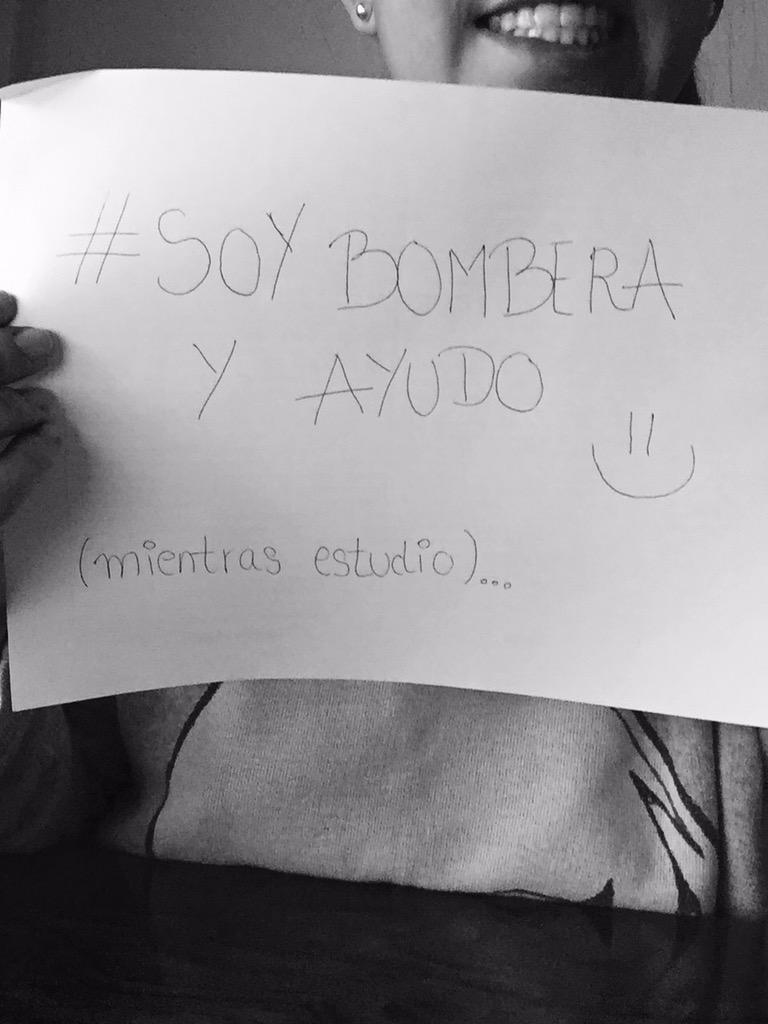 #SOY BOMBERA
Y AYUDO
(mientras estudio)...